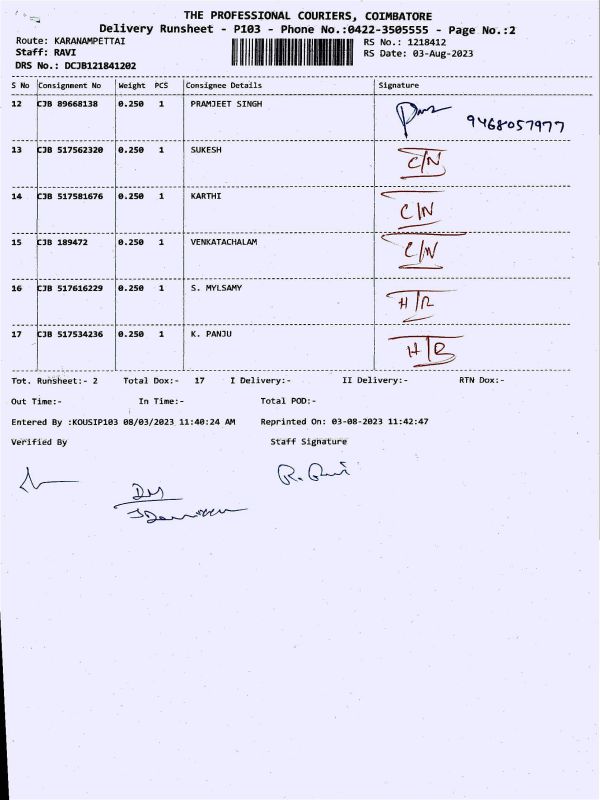 THE PROFESSIONAL COURIERS, COIMBATORE
Delivery Runsheet - P103 - Phone No.:0422-3505555 - Page No.:2
Route: KARANAMPETTAI RS No.: 1218412
Staff: RAVI RS Date: 03-Aug-2023
DRS No.: DCJB121841202
S No Consignment No Weight PCS Consignee Details Signature
12 CJB 89668138 0.250 1 PRAMJEET SINGH 9468057977
13 CJB 517562320 0.250 1 SUKESH C/N
14 CJB 517581676 0.250 1 KARTHI C/N
15 CJB 189472 0.250 1 VENKATACHALAM C/N
16 CJB 517616229 0.250 1 S. MYLSAMY
17 CJB 517534236 0.250 1 K. PANJU
Tot. Runsheet:- 2 Total Dox:- 17 I Delivery:- II Delivery:- RTN Dox:-
Out Time:- In Time:- Total POD:-
Entered By :KOUSIP103 08/03/2023 11:40:24 AM Reprinted On: 03-08-2023 11:42:47
Verified By Staff Signature
R. Ravi